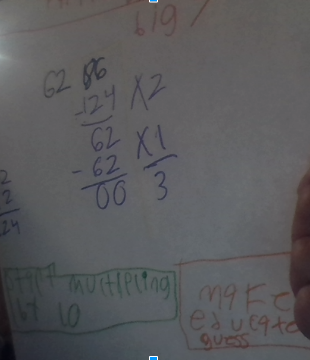 619
62 86
-124 X2
62 X1
-62
00 3
2
2
24
start multiplying
by 10
make
educate
guess